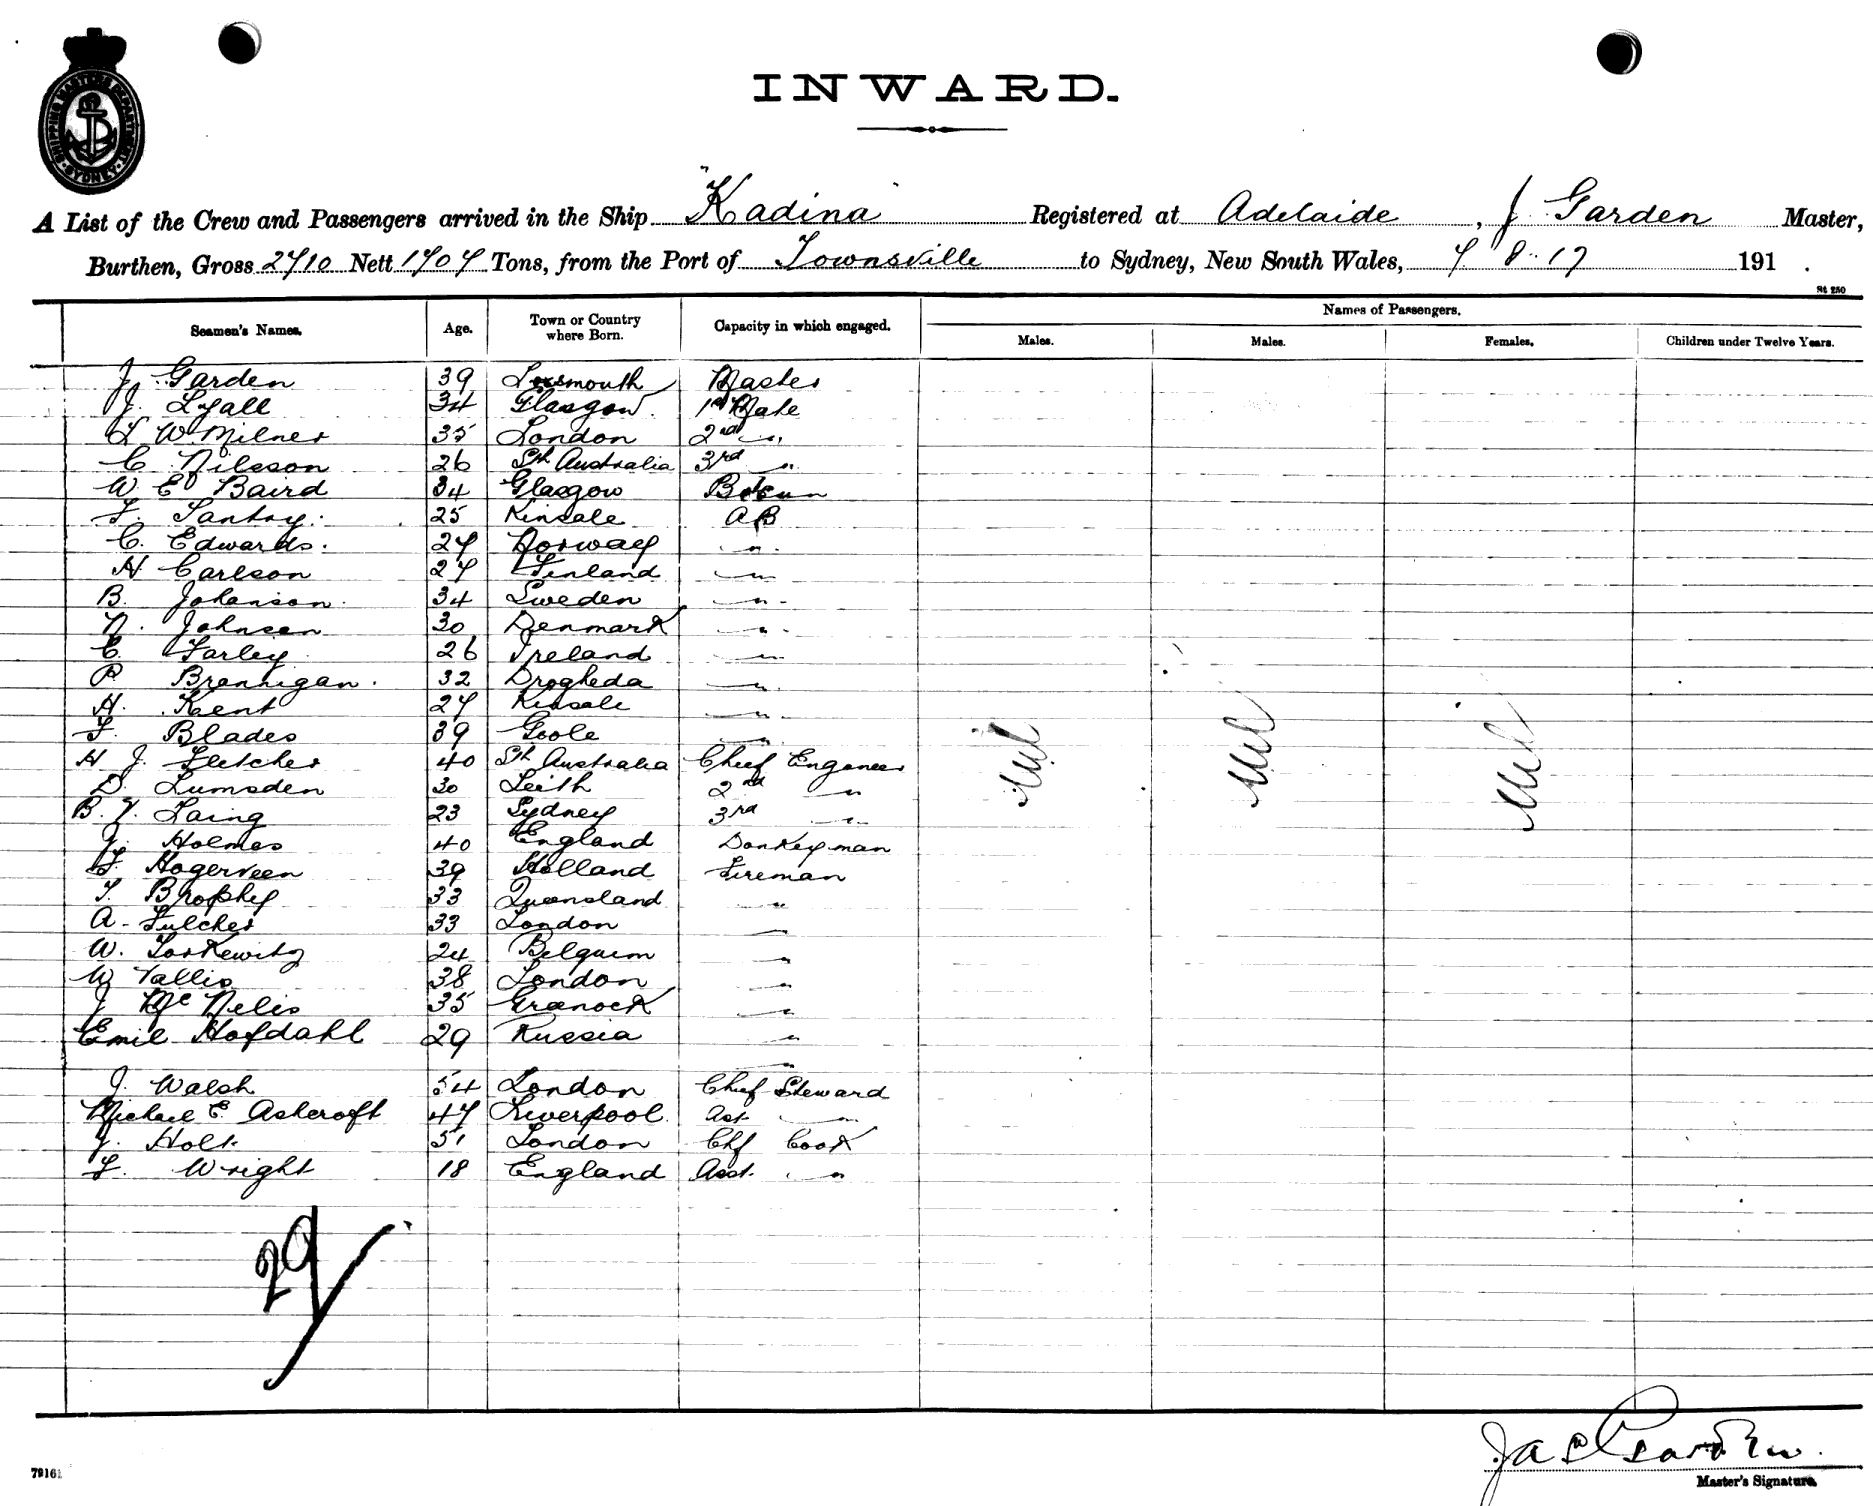 SHIPPING MASTERS DEPARTMENT SYDNEY
INWARD.
A List of the Crew and Passengers arrived in the Ship "Kadina" Registered at Adelaide, J Garden Master,
Burthen, Gross 2710 Nett 1707 Tons, from the Port of Townsville to Sydney, New South Wales, 7 8 17 191 .
St 250
Seamen's Names. Age. Town or Country where Born. Capacity in which engaged. Names of Passengers.
Males. Males. Females. Children under Twelve Years.
J Garden 39 Master
J. Lyall 34 Glasgow. 1st Mate
L W Milner 35 London 2nd "
C Nilsson 26 Sth Australia 3rd "
W E Baird 34 Glasgow Bosun
T. Santry 25 Kinsale AB
C. Edwards. 27 Norway "
H Carlson 27 Finland "
B. Johanson 34 Sweden "
N. Johnsen 30 Denmark "
C. Farley 26 Ireland "
P. Brannigan. 32 Drogheda "
H. Kent 27 Kinsale "
F. Blades 39 Goole "
H J. Fletcher 40 Sth Australia Chief Engineer
D. Lumsden 30 Leith 2nd "
B. V. Laing 23 Sydney 3rd "
J. Holmes 40 England Donkeyman
F. Hogerveen 39 Holland Fireman
T. Brophy 33 Queensland "
A. Fulcher 33 London "
W. 24 Belguim "
W Vallis 38 London "
J McNelis 35 Greenock "
Emil Hofdahl 29 Russia "
"
J. Walsh 54 London Chief Steward
Michael E. Ashcroft 47 Liverpool Ast "
J. Holt 51 London Chf Cook
F. Wright 18 England Asst. "
Nil Nil Nil
29
Jas Garden
Master's Signature
79161